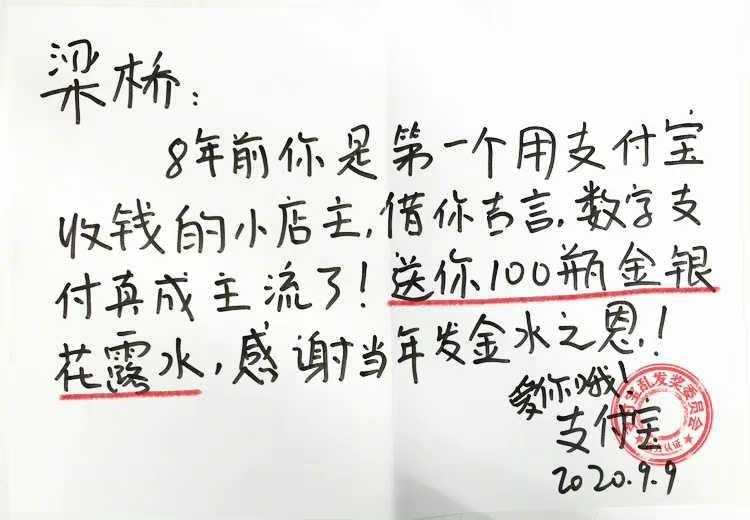 梁桥:
8年前你是第一个用支付宝
收钱的小店主,借你吉言,数字支
付真成主流了!送你100瓶金银
花露水,感谢当年发金水之恩!
爱你哦!
支付宝
2020.9.9
宝乱发奖委员会